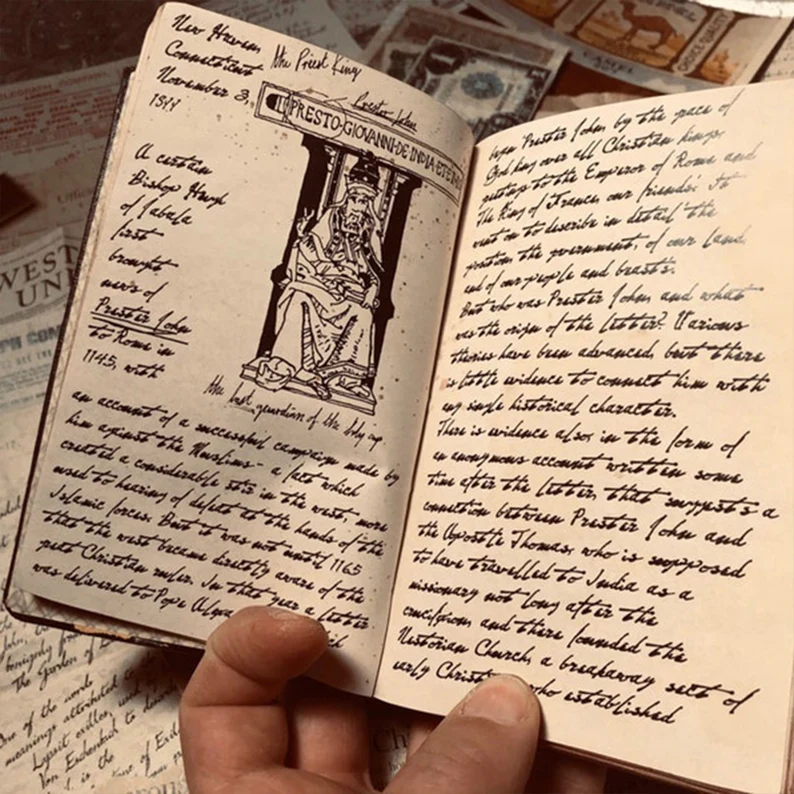 New Haven,
Connecticut
November 3,
1977
the Priest King
Prester John
PRESTO·GIOVANNI·DE·INDIA·ET·E
A certain
Bishop Hugh
of Jabala
first
brought
news of
Prester John
to Rome in
1145, with
the last guardian of the holy cup.
an account of a successful campaign made by
him against the Muslims - a fact which
created a considerable stir in the west, more
used to hearing of defeat at the hands of the
Islamic forces. But it was not until 1165
that the west became directly aware of the
great Christian ruler. In that year a letter
was delivered to Pope
begun 'Prester John, by the grace of
God king over all Christian kings,
greetings to the Emperor of Rome and
The King of France, our friends.' It
went on to describe in detail 'the
position, the government, of our land,
and of our people and beasts.'
But who was Prester John, and what
was the origin of the letter? Various
theories have been advanced, but there
is little evidence to connect him with
any single historical character.
There is evidence also, in the form of
an anonymous account written some
time after the letter, that suggests a
connection between Prester John and
the Apostle Thomas, who is supposed
to have travelled to India as a
missionary not long after the
crucifixion, and there founded the
Nestorian Church, a breakaway sect of
early who established
WEST
UN
CHOICE QUALITY
The Garden of
One of the
meanings attributed to
Von Eschenbach to
is the
Ch